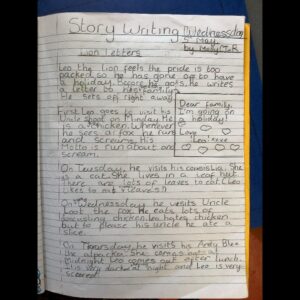 Story Writing Wednesday
5 May
by Molly M.R
Lion Letters
Leo the lion feels the pride is too
packed so he has gone off to have
a holiday. Before he gos, he writes
a letter to his family.
He sets off right away.
Dear family,
I'm going on
a holiday!
Love
Leo xxxx
First Leo goes to visit his
Uncle on Monday. He
is a chicken. Whenever
he sees a fox he runs
and screams. His
Moto is run about and
scream.
On Tuesday, he visits his cousin Lia. She
is a cat. She lives in a leaf hut.
There are lots of leaves to eat. (Leo
likes to eat leaves?)
On Wednesday he visits Uncle
Loot the fox. He eats lots of
chicken. Leo hates chicken
but to please his uncle he ate a
slice.
On Thursday he visits his Andy Blue
the alpacka. She comes out at
midnight. Leo comes out after lunch.
It is very dark at night and Leo is very
scared!